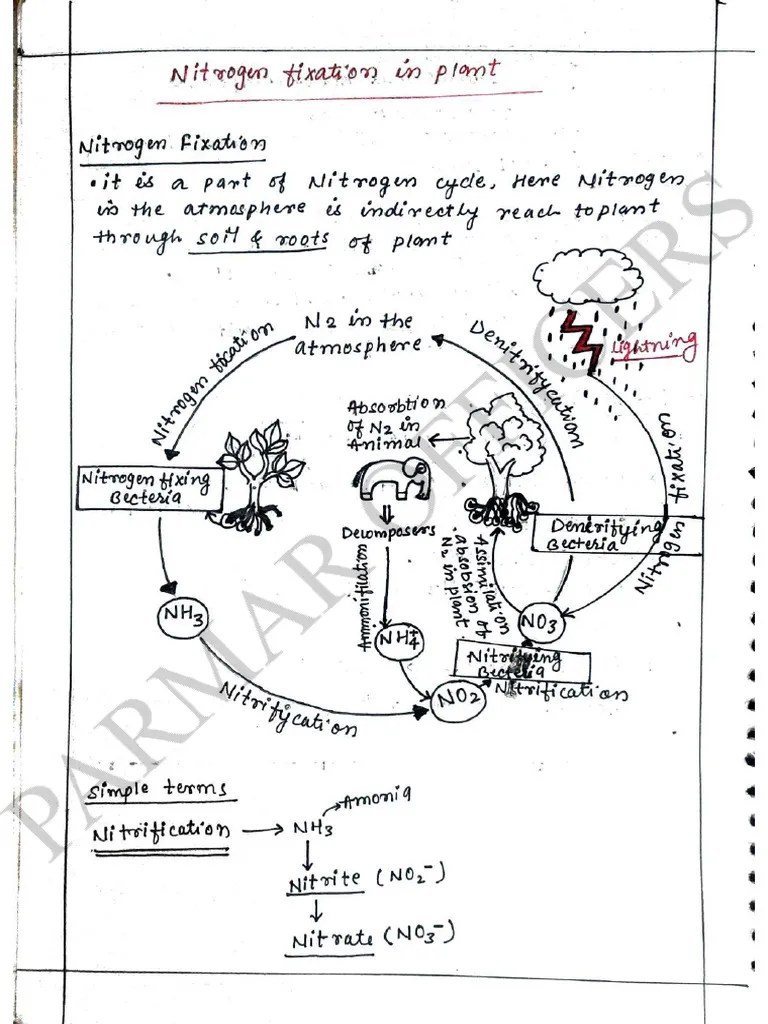 Nitrogen fixation in plant
Nitrogen Fixation
• it is a part of Nitrogen cycle, Here Nitrogen
in the atmosphere is indirectly reach to plant
through soil & roots of plant
Lightning
N2 in the
atmosphere
Nitrogen fication
Denitrifycation
Nitrogen fixation
Absorbtion
of N2 in
Animal
Nitrogen fixing
Becteria
Decomposers
Denitrifying
Becteria
Ammonifilation
Assimilation
• absorbsion of
N2 in plant.
NH3
NH4+
NO3
Nitrifying
Becteria
Nitrification
NO2
Nitrifycation
Simple terms
Nitrification → NH3 → Amonia
↓
Nitrite (NO2-)
↓
Nitrate (NO3-)
PARMAR OFFICERS